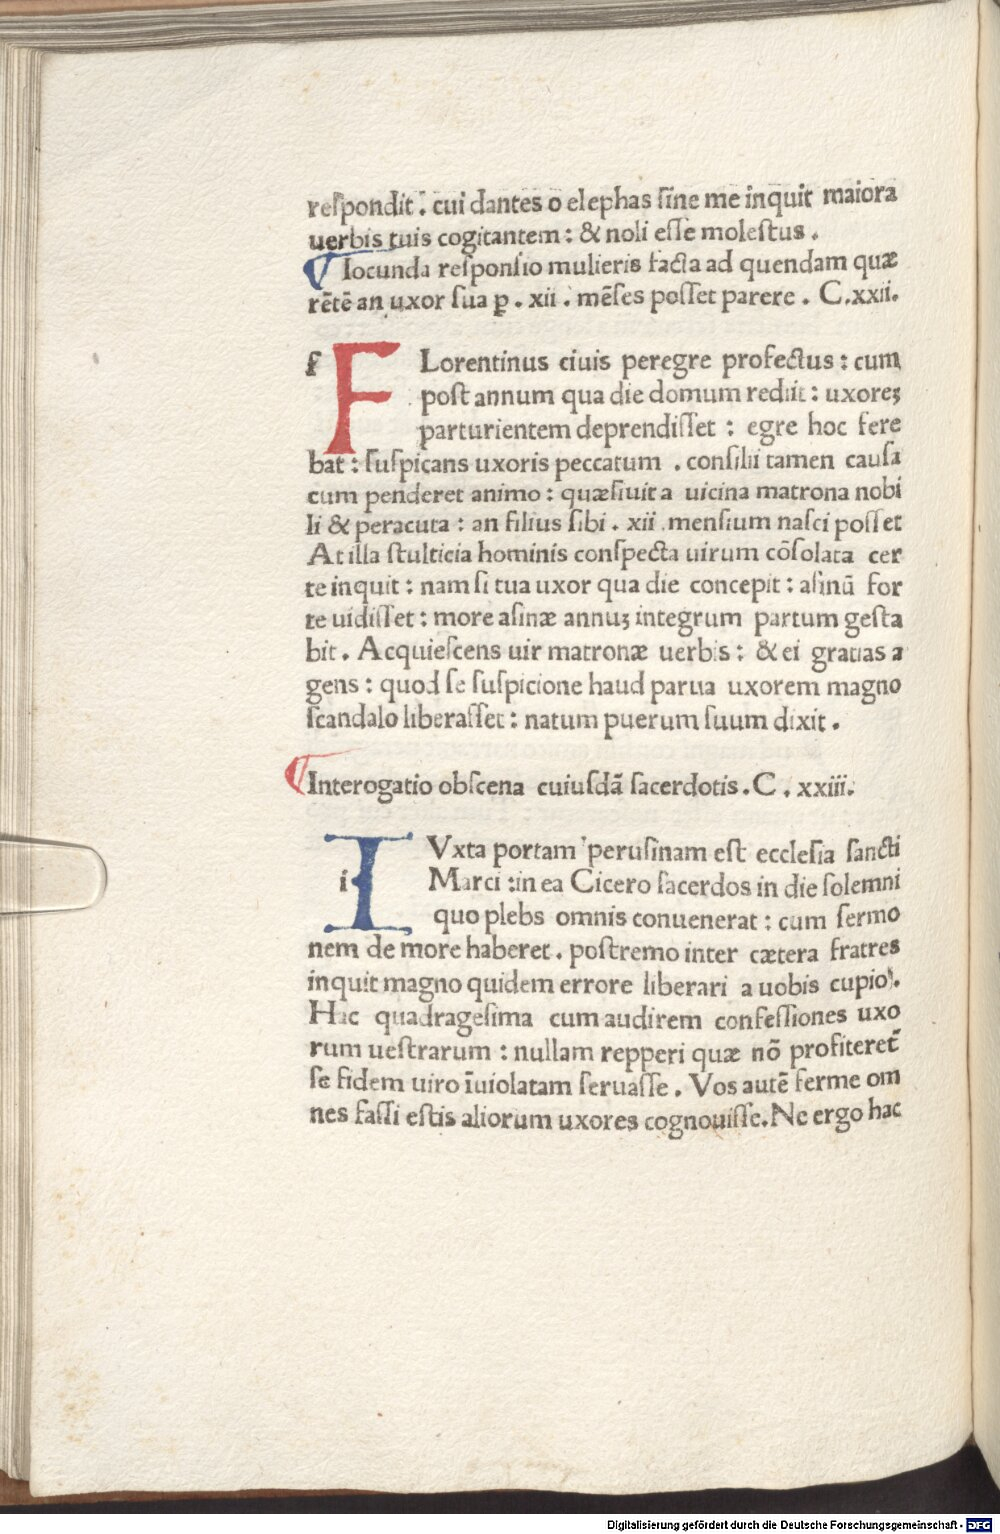 reſpondit. cui dantes o elephas ſine me inquit maiora
uerbis tuis cogitantem: & noli eſſe moleſtus.
¶ Iocunda reſponſio mulieris facta ad quendam quæ
rētē an uxor ſua ꝑ. xii. mēſes poſſet parere. C.xxii.
f FLorentinus ciuis peregre profectus: cum
poſt annum qua die domum rediit: uxoreꝫ
parturientem deprendiſſet: egre hoc fere
bat: ſuſpicans uxoris peccatum. conſilii tamen cauſa
cum penderet animo: quæſiuit a uicina matrona nobi
li & peracuta: an filius ſibi. xii. menſium naſci poſſet
At illa ſtulticia hominis conſpecta uirum cōſolata cer
te inquit: nam ſi tua uxor qua die concepit: aſinū for
te uidiſſet: more aſinæ annuꝫ integrum partum geſta
bit. Acquieſcens uir matronæ uerbis: & ei gratias a
gens: quod ſe ſuſpicione haud parua uxorem magno
ſcandalo liberaſſet: natum puerum ſuum dixit.
¶ Interogatio obſcena cuiuſdā ſacerdotis. C. xxiii.
i IVxta portam peruſinam eſt eccleſia ſancti
Marci: in ea Cicero ſacerdos in die ſolemni
quo plebs omnis conuenerat: cum ſermo
nem de more haberet. poſtremo inter cætera fratres
inquit magno quidem errore liberari a uobis cupio.
Hac quadrageſima cum audirem confeſſiones uxo
rum ueſtrarum: nullam repperi quæ nō profiteret̄
ſe fidem uiro īuiolatam ſeruaſſe. Vos autē ferme om
nes faſſi eſtis aliorum uxores cognouiſſe. Ne ergo hac
Digitalisierung gefördert durch die Deutsche Forschungsgemeinschaft - DFG